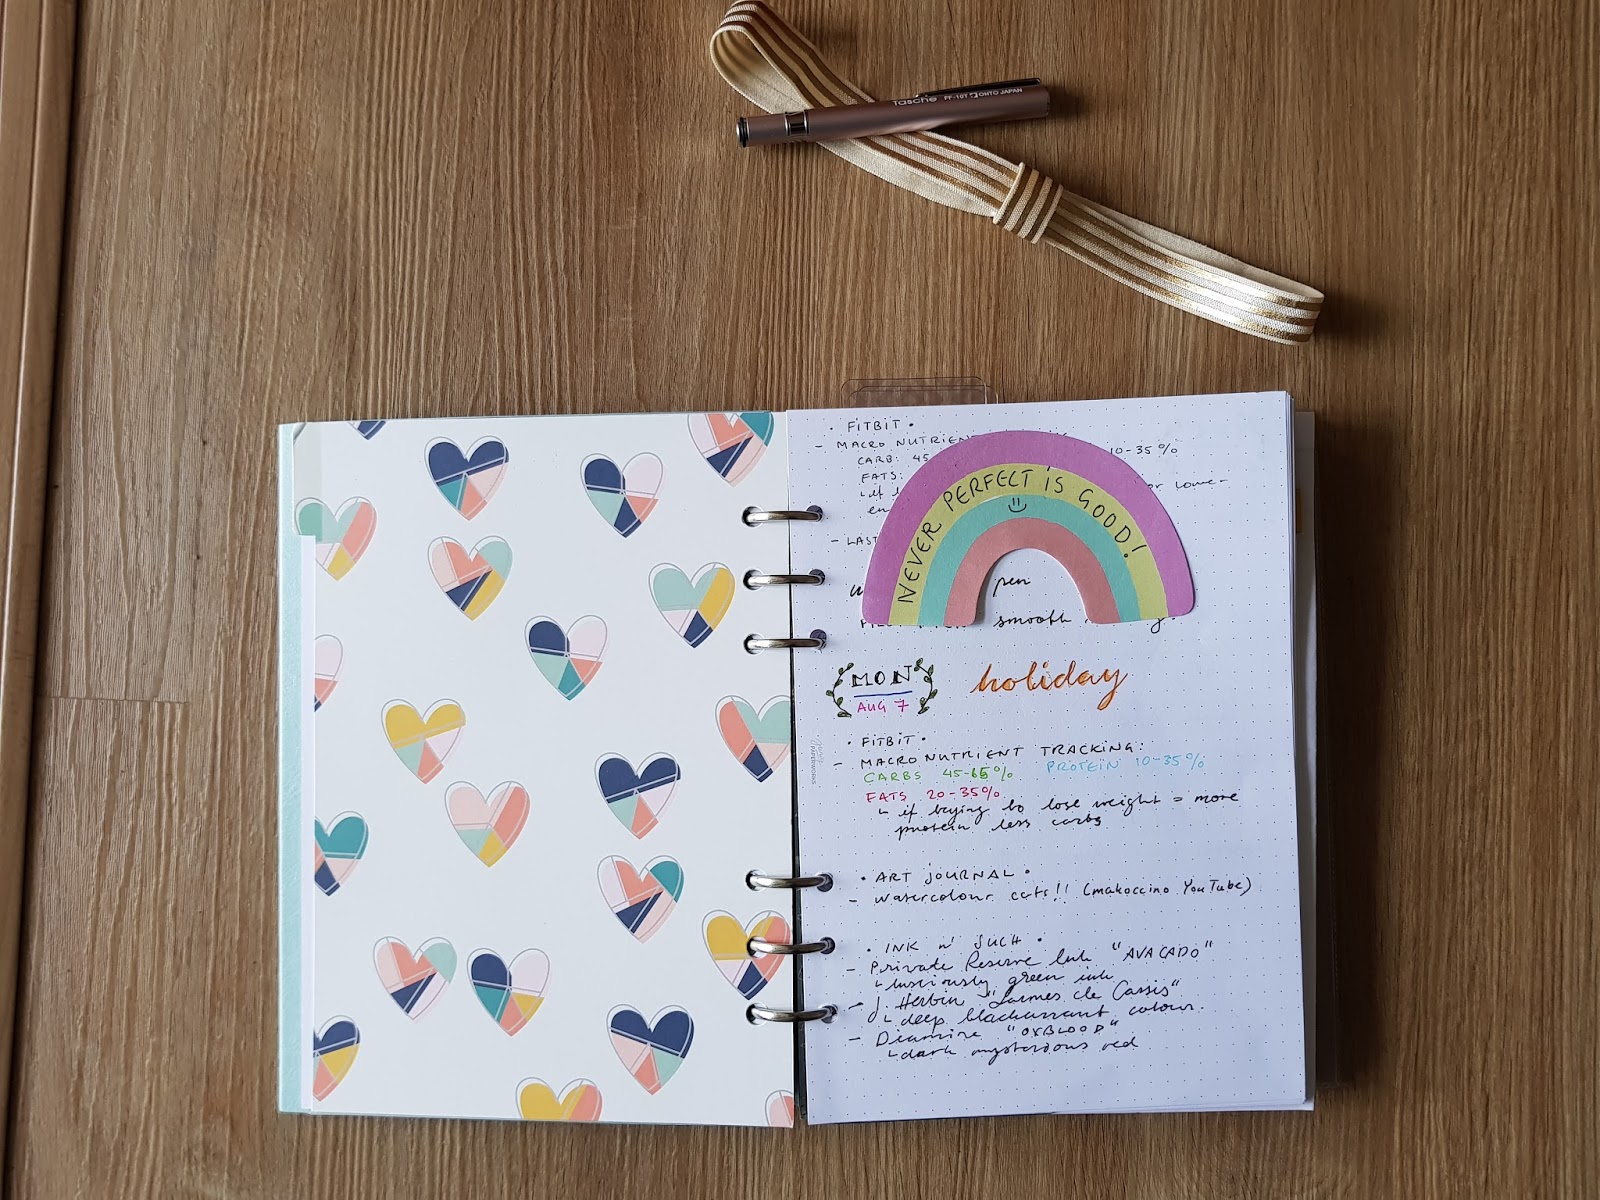 Tasche FF-10T OHTO JAPAN
• FITBIT •
- MACRO NUTRIEN
CARB: 45 10-35%
FATS:
or lowe-
en
NEVER PERFECT IS GOOD!
- LAST
pen
smooth
MON
AUG 7
holiday
• FITBIT •
- MACRO NUTRIENT TRACKING:
CARBS 45-65% PROTEIN 10-35%
FATS 20-35%
↳ if trying to lose weight = more
protein less carbs
• ART JOURNAL •
- Watercolour cats!! (makoccino YouTube)
• INK n' SUCH •
- Private Reserve Ink "AVACADO"
↳ lusciously green ink
- J. Herbin "Larmes de Cassis"
↳ deep blackcurrant colour
- Diamine "OXBLOOD"
↳ dark mysterious red